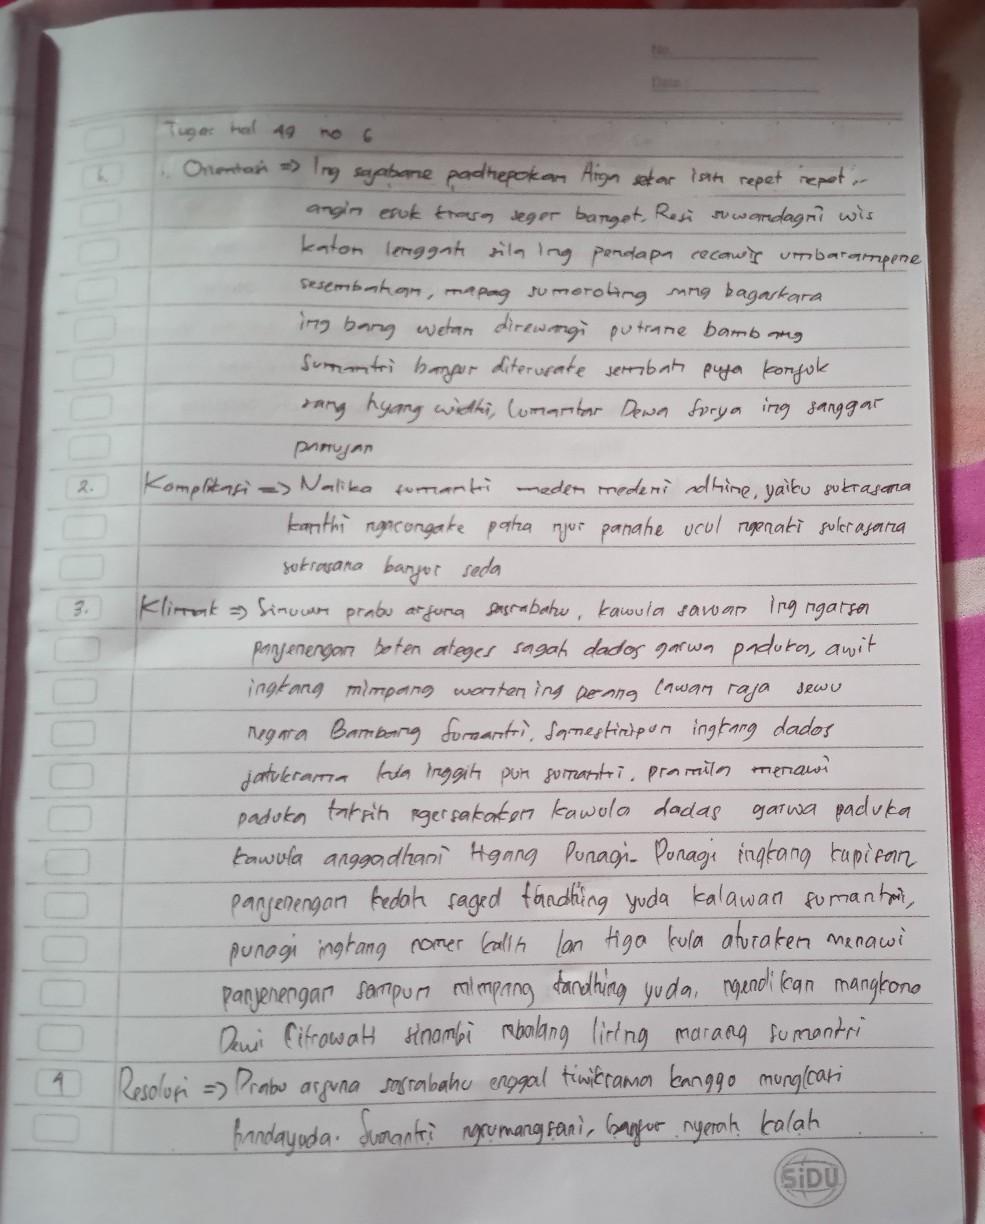 No.
Date:
Tugas hal 49 no 6
1. Orientasi => Ing sajabane padhepokan Argo sekar isih repet repet,
angin esuk krasa seger banget, Resi suwandagni wis
katon lenggah sila ing pendapa cecawis umbarampene
sesembahan, mapag sumoroting sang bagaskara
ing bang wetan direwangi putrane bambang
Sumantri banjur diterusake sembah puja konjuk
sang hyang widhi, lumantar Dewa Surya ing sanggar
pamujan
2. Komplikasi => Nalika sumantri meden medeni adhine, yaiku sukrasana
kanthi ngacongake panah njur panahe ucul ngenaki sukrasana
sukrasana banjur seda
3. Klimak => Sinuwun prabu arjuna sasrabahu, kawula sawan ing ngarsa
panjenengan boten ateges sagah dados garwa paduka, awit
ingkang mimpang wonten ing perang lawan raja sewu
negara Bambang Sumantri, Samestinipun ingkang dados
jatukrama kula inggih pun sumantri. pramila menawi
paduka taksih ngersakaken kawula dados garwa paduka
kawula anggadhani Ponagi-Ponagi ingkang kapisan
panjenengan kedah saged tandhing yuda kalawan sumantri,
punagi ingkang nomer kalih lan tiga kula aturaken menawi
panjenengan sampun mimpang tandhing yuda, ngendikan mangkono
Dewi Citrawati sinambi mbalang liring marang sumantri
4 Resolusi => Prabu arjuna sasrabahu enggal tiwikrama kanggo mungkasi
bandayuda. Sumantri ngrumangsani, banjur nyerah kalah
SiDU